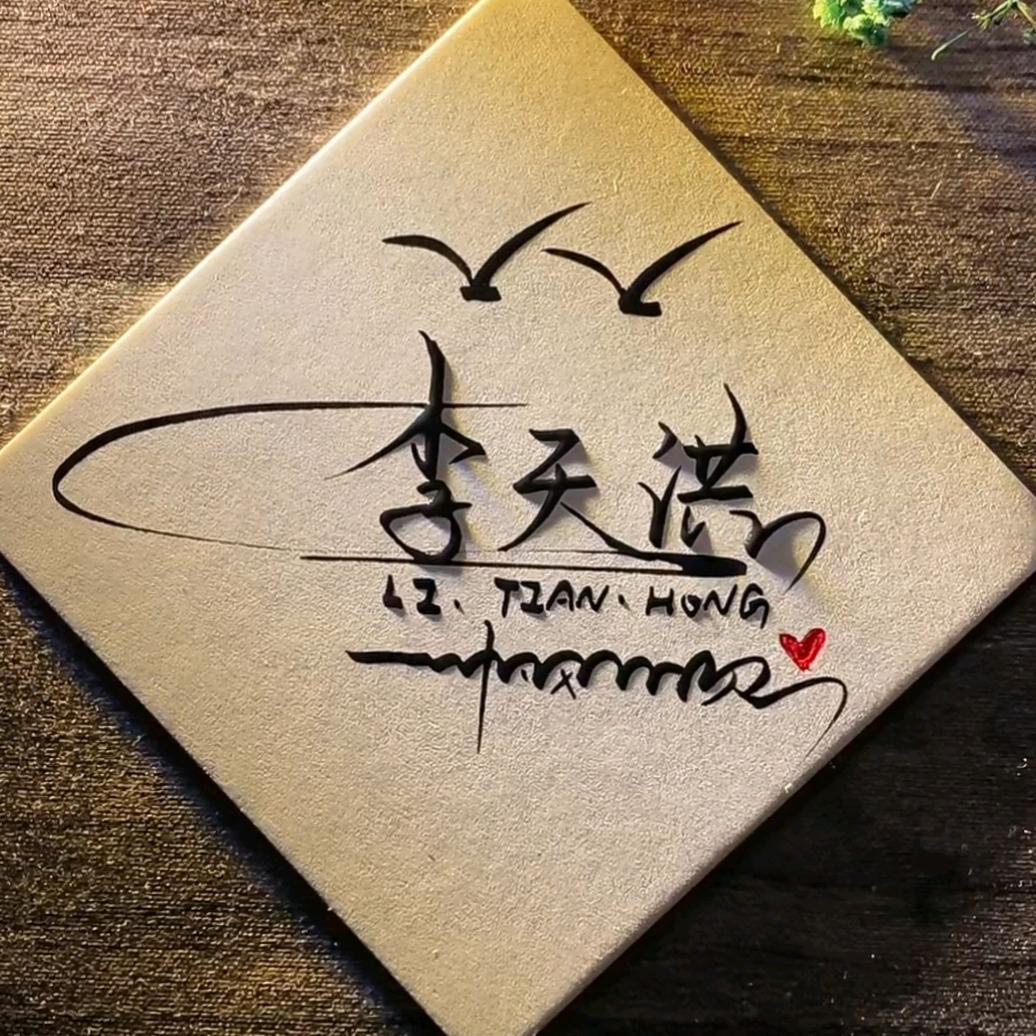 李天洪
LI. TIAN. HONG